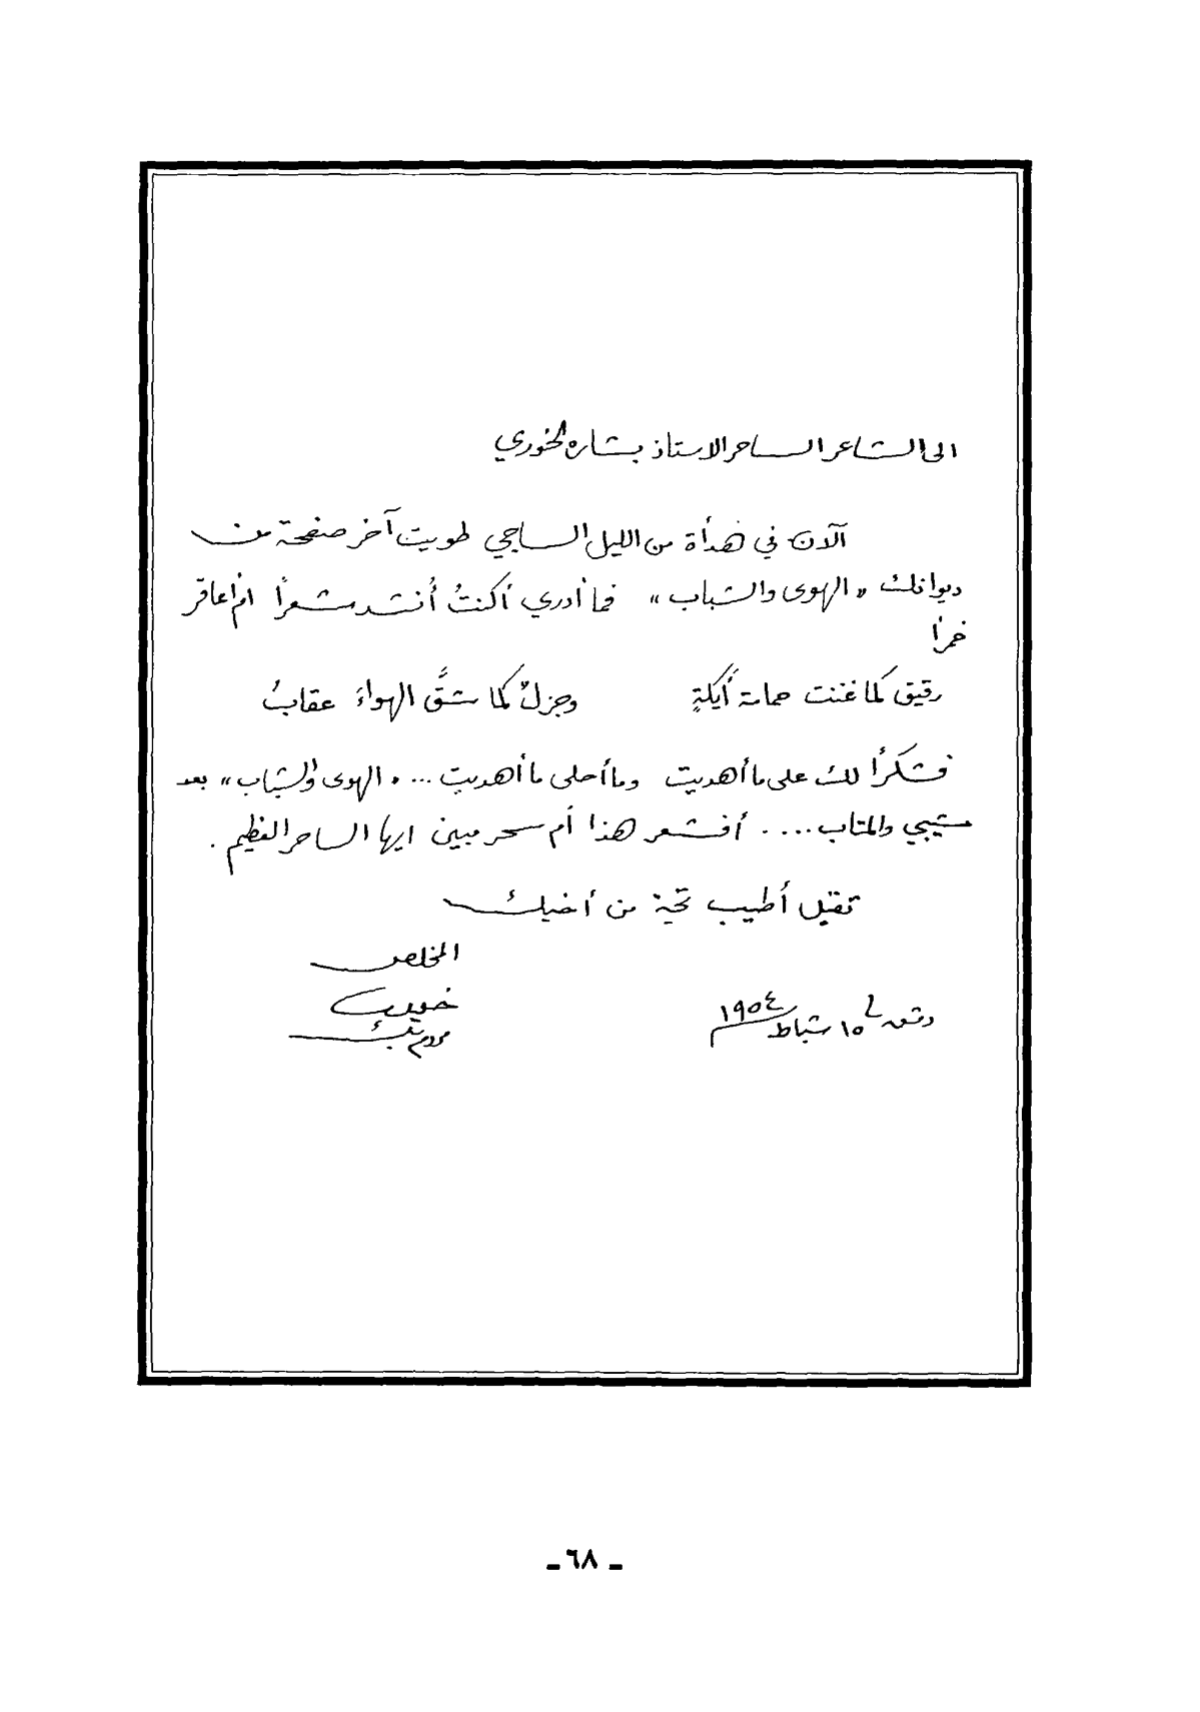 الى الشاعر الساحر الاستاذ بشاره الخوري
الآن في هدأة من الليل الساجي طويت آخر صفحة من
ديوانك « الهوى والشباب » فما أدري أكنتُ أُنشد شعراً ام أعاقر
خمراً
رقيق كما غنت حمامة أيكةٍ وجزلٌ كما شقَّ الهواءَ عقابُ
فشكراً لك على ما أهديت وما أحلى ما أهديت ... « الهوى والشباب » بعد
مشيبي والمتاب .... أفشعر هذا أم سحر مبين ايها الساحر العظيم .
تقبل أطيب تحية من أخيك
المخلص
خليل
مردم بك
دمشق في ١٥ شباط ١٩٥٤
ـ ٦٨ ـ